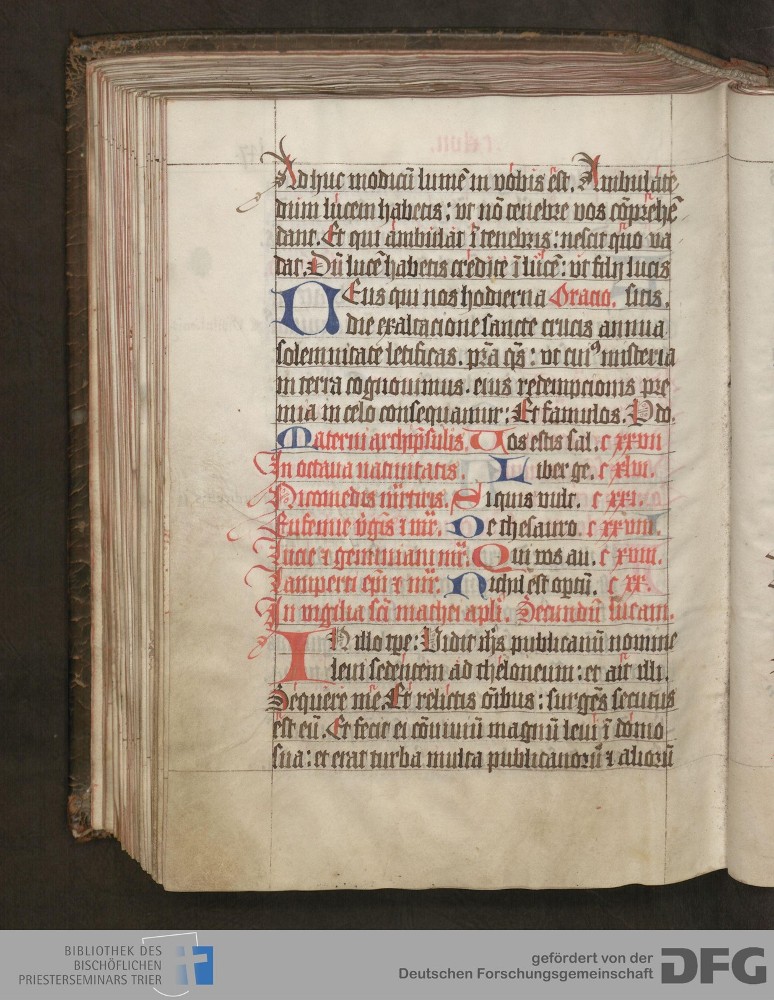 Adhuc modicū lumē in vobis est. Ambulate
dum lucem habetis: vt nō tenebre vos cōprehē
dant. Et qui ambulat ī tenebris: nescit quo va
dat. Dū lucē habetis credite ī lucē: vt filij lucis
DEus qui nos hodierna Oracio. sitis.
die exaltacione sancte crucis annua
solemnitate letificas. p̄ta q̄s: vt cuiꝰ misteria
in terra cognouimus. eius redempcionis pre
mia in celo consequamur: Et famulos. Pdo.
Materni archip̄sulis. Vos estis sal. c xxvii
In octaua natiuitatis. Liber ge. c xlvi.
Nicomedis mr̄tiris. Siquis vult. c xxi.
Eufemie v̄gīs ⁊ mr̄. De thesauro. c xxviii.
Lucie ⁊ geminiani mr̄. Qui vos au. c xviii.
Lamperti ep̄i ⁊ mr̄. Nichil est optū. c xx.
In vigilia sc̄i mathei apl̄i. Secundū lucam.
IN illo tp̄e: Vidit ih̄s publicanū nomine
leui sedentem ad theloneum: et ait illi.
Sequere me. Et relictis ōibus: surgēs secutus
est eū. Et fecit ei cōuiuiū magnū leui ī domo
sua: et erat turba multa publicanorū ⁊ aliorū
BIBLIOTHEK DES
BISCHÖFLICHEN
PRIESTERSEMINARS TRIER
gefördert von der
Deutschen Forschungsgemeinschaft
DFG